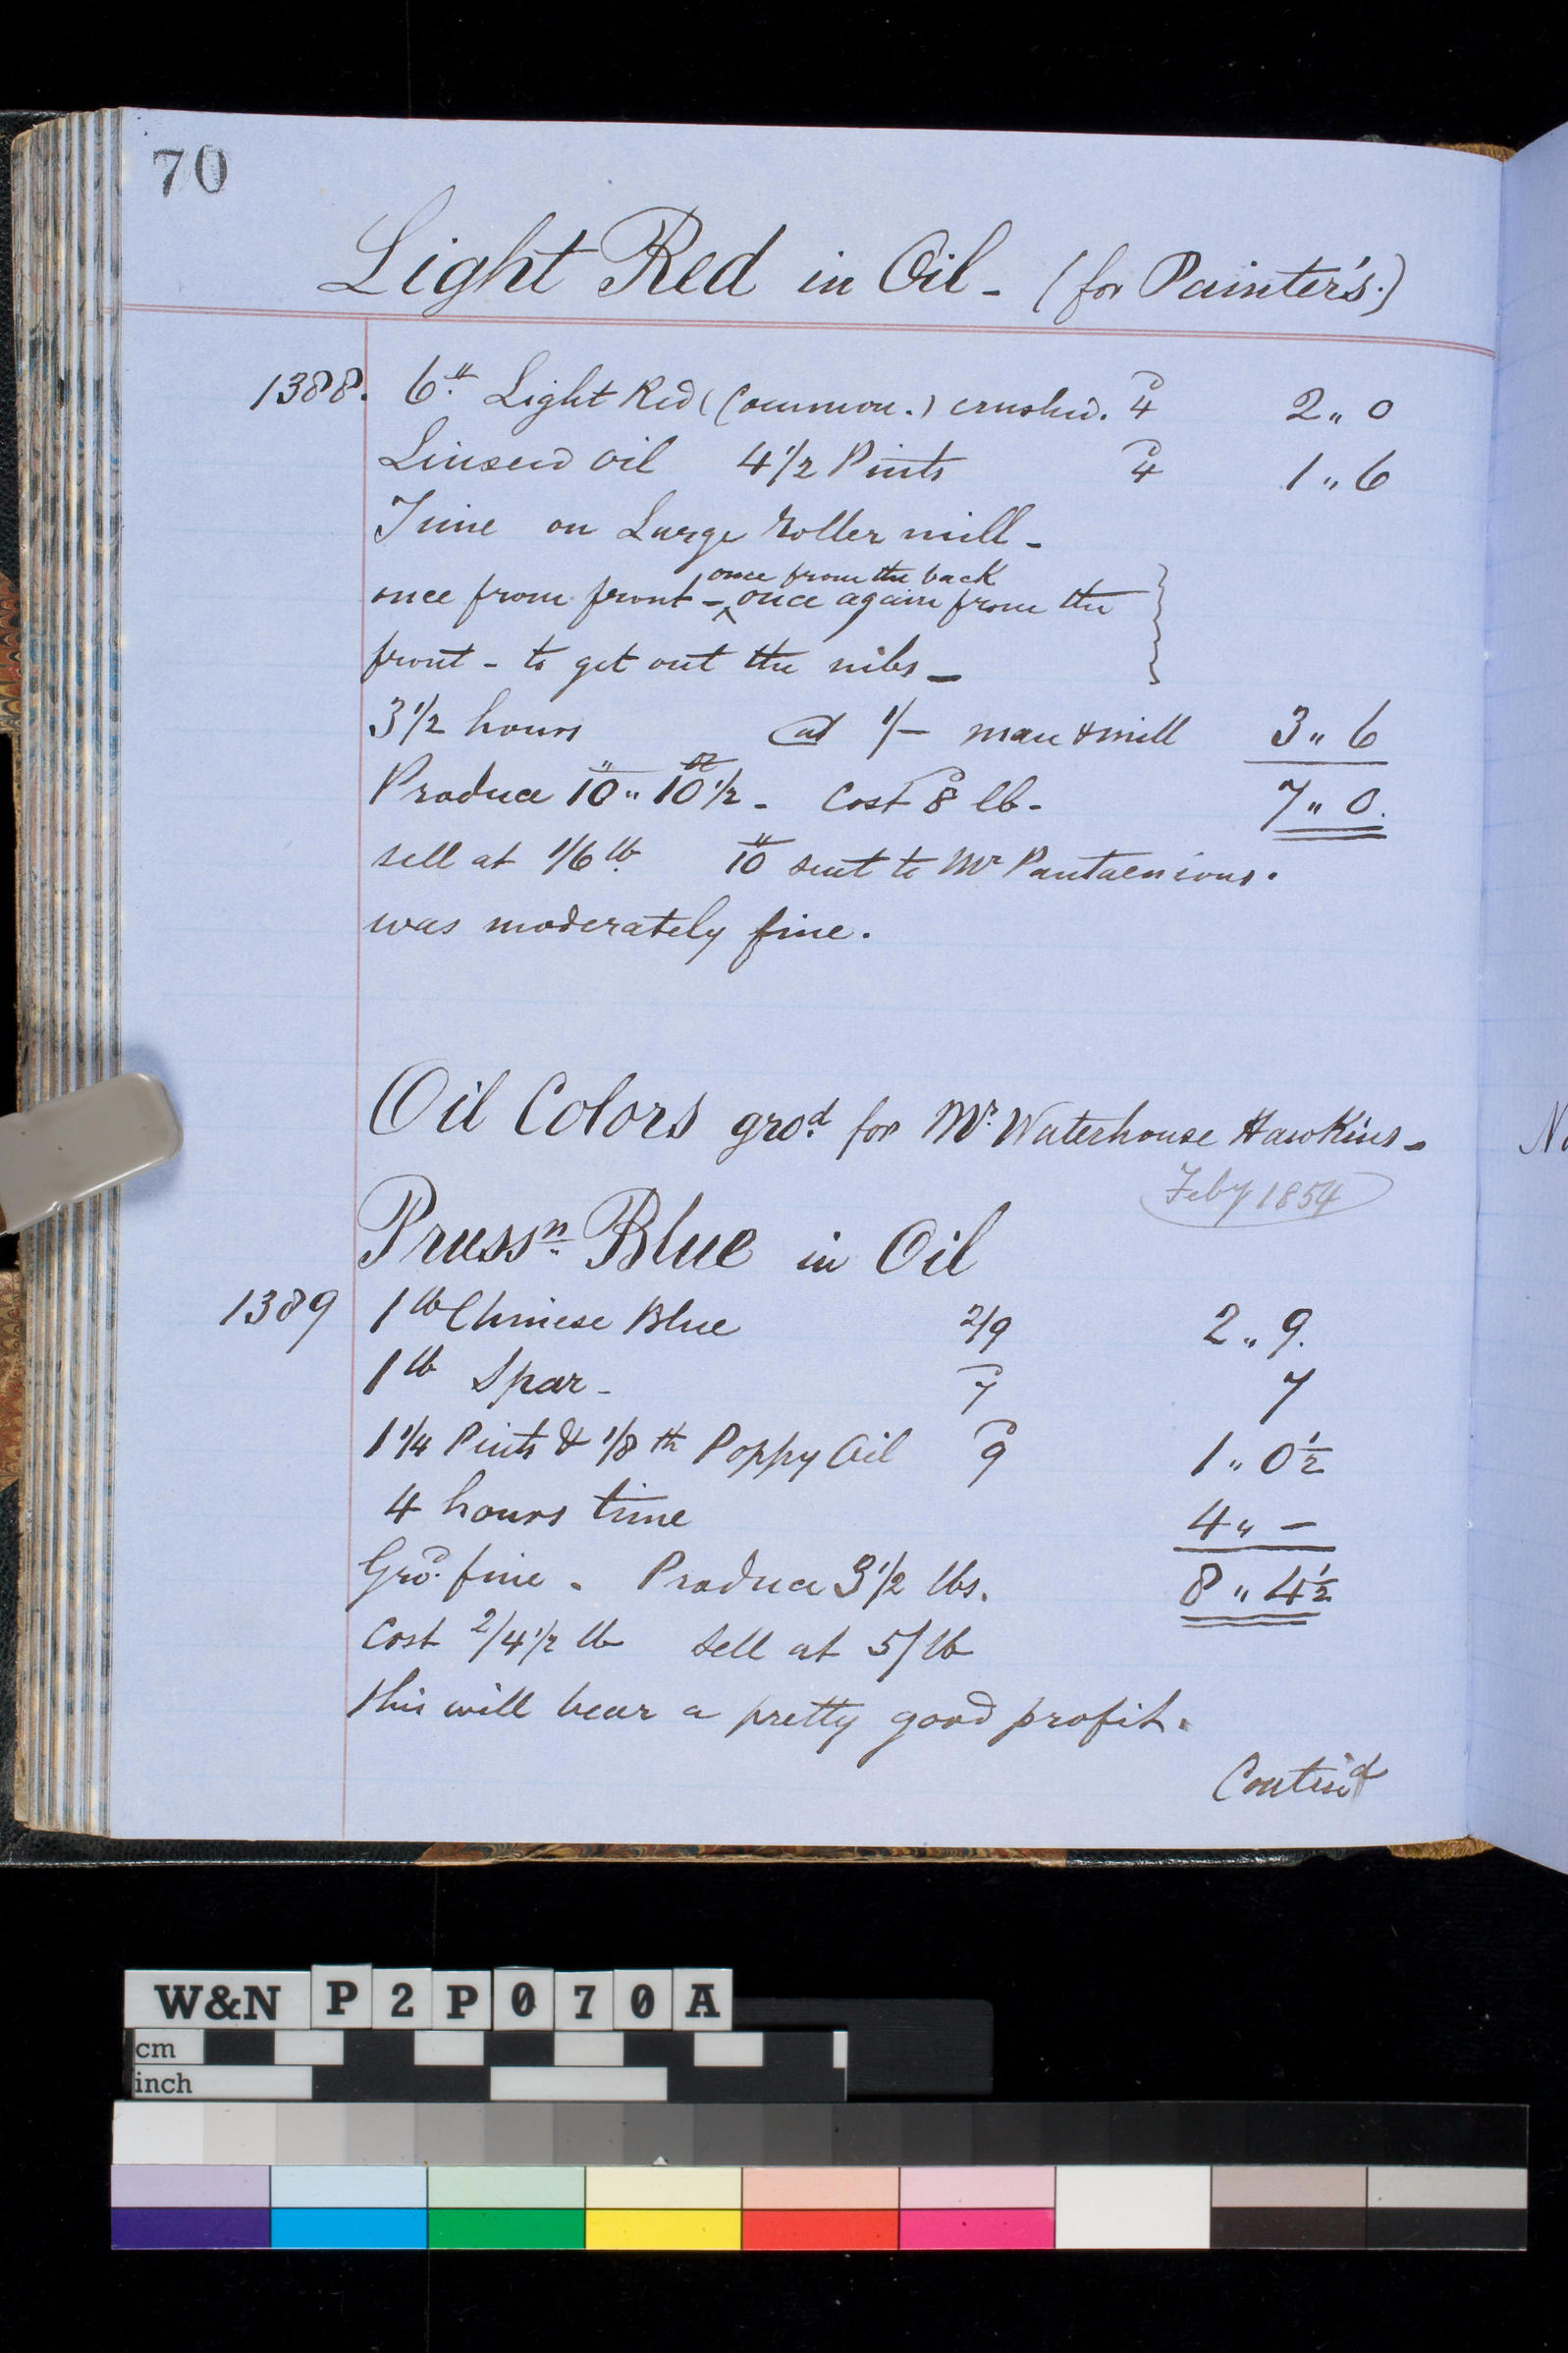 70
Light Red in Oil - (for Painter's.)
1388. 6" Light Red (Common.) crushed. 4d 2 " 0
Linseed oil 4 1/2 Pints 4d 1 " 6
Time on Large Roller mill -
once from the back
once from front - ^ once again from the
front - to get out the nibs -
3 1/2 hours at 1/- man & mill 3 " 6
Produce 10" " 10 1/2 oz - Cost 8d lb - 7 " 0.
sell at 1/6 lb. 10" sent to Mr
was moderately fine.
Oil Colors gro.d for Mr. Waterhouse Hawkins -
Feby 1854
Pruss.n Blue in Oil
1389 1 lb Chinese Blue 2/9 2 " 9.
1 lb Spar - 7d 7
1 1/4 Pints & 1/8 th Poppy Oil 9d 1 " 0 1/2
4 hours time 4 " -
Gro.d fine. Produce 3 1/2 lbs. 8 " 4 1/2
Cost 2/4 1/2 lb sell at 5/ lb
this will bear a pretty good profit.
Contin'd
No
W&N P2P070A
cm
inch